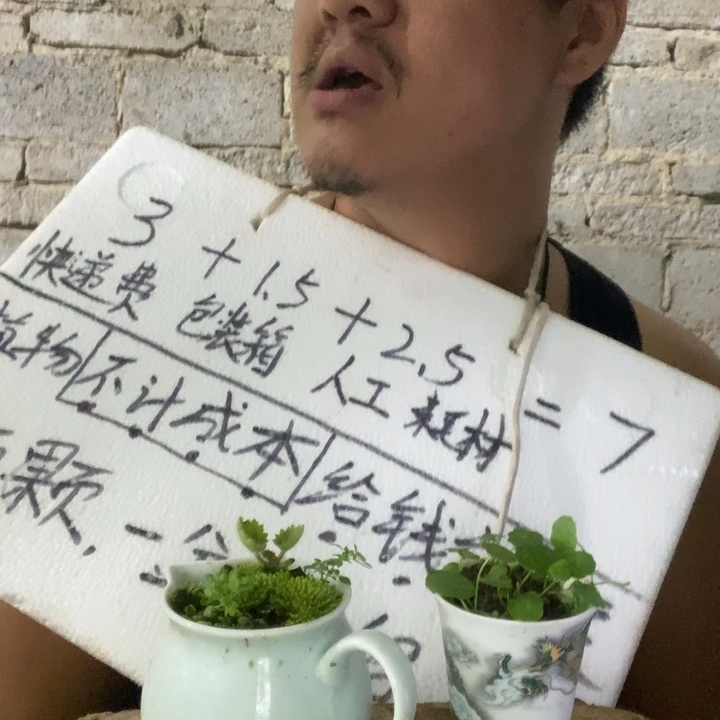 3 + 1.5 + 2.5 = 7
快递费 包装箱 人工 耗材
植物 不计成本 给钱
颗, 一分